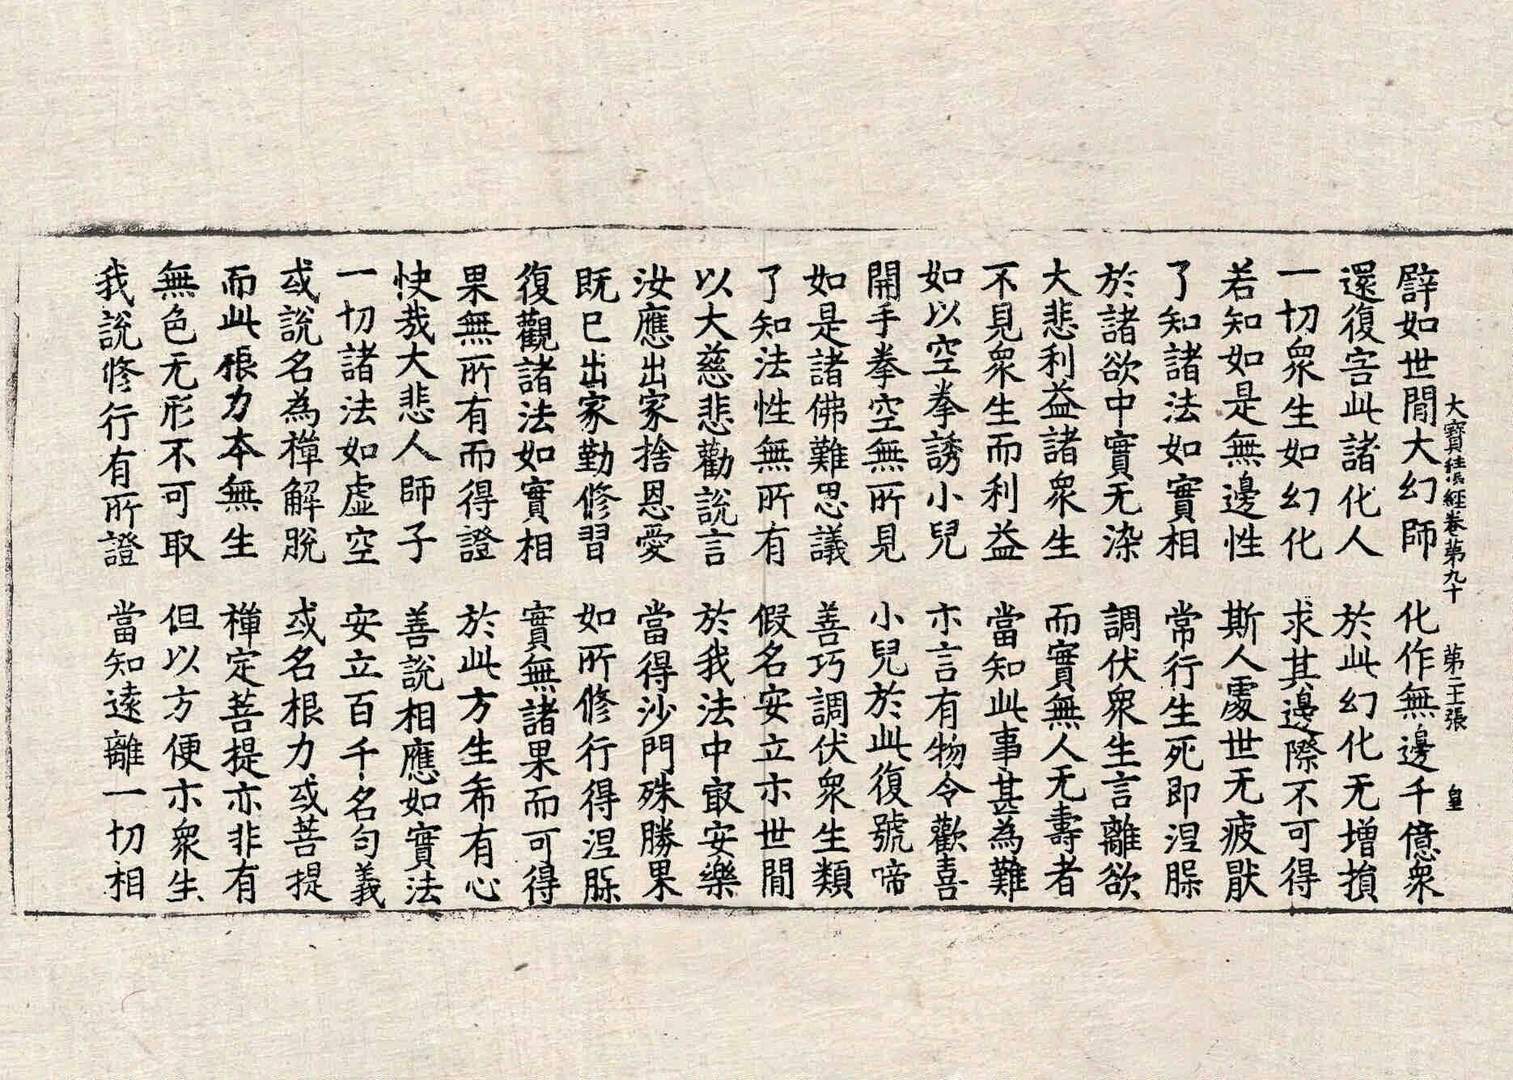 大寶積經卷第九十 第二王張 皇
譬如世間大幻師 化作無邊千億衆
還復害此諸化人 於此幻化无增損
一切衆生如幻化 求其邊際不可得
若知如是無邊性 斯人處世无疲厭
了知諸法如實相 常行生死即涅槃
於諸欲中實无染 調伏衆生言離欲
大悲利益諸衆生 而實無人无壽者
不見衆生而利益 當知此事甚為難
如以空拳誘小兒 示言有物令歡喜
開手拳空無所見 小兒於此復號啼
如是諸佛難思議 善巧調伏衆生類
了知法性無所有 假名安立示世間
以大慈悲勸說言 於我法中最安樂
汝應出家捨恩愛 當得沙門殊勝果
既已出家勤修習 如所修行得涅槃
復觀諸法如實相 實無諸果而可得
果無所有而得證 於此方生希有心
快哉大悲人師子 善說相應如實法
一切諸法如虛空 安立百千名句義
或說名為禪解脫 或名根力或菩提
而此根力本無生 禪定菩提亦非有
無色无形不可取 但以方便示衆生
我說修行有所證 當知遠離一切相